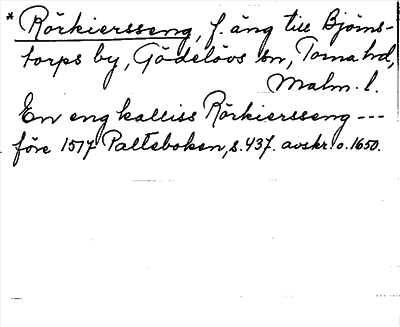 * Rörkiersseng, f. äng till Björns-
torps by, Gödelövs sn, Torna hd,
Malm. l.
En eng kalliss Rörkiersseng ---
före 1517 Palteboken, s. 437. avskr. o. 1650.